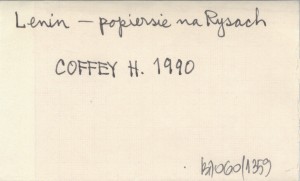 Lenin – popiersie na Rysach
COFFEY H. 1990
b7060/1359